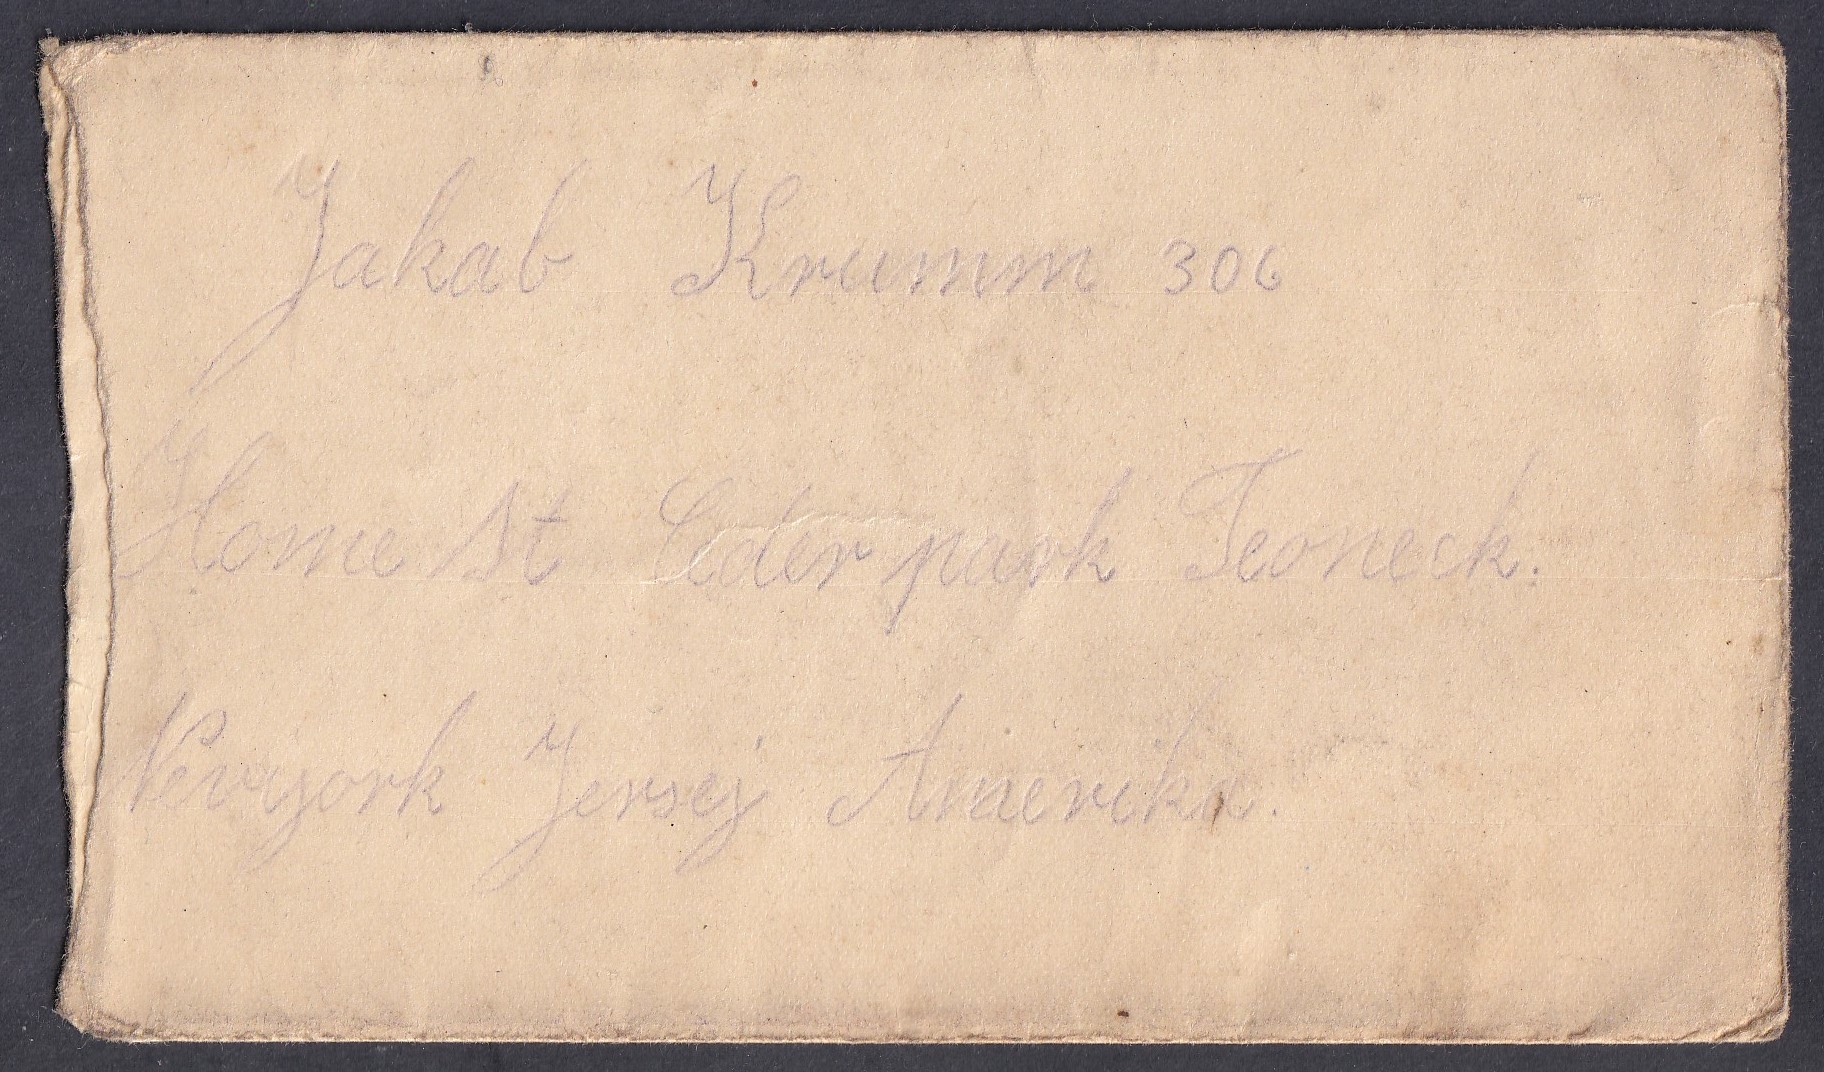 Jakab Krumm 306
Home St Ceder park Teoneck.
Nevyork Jersej Amerika.